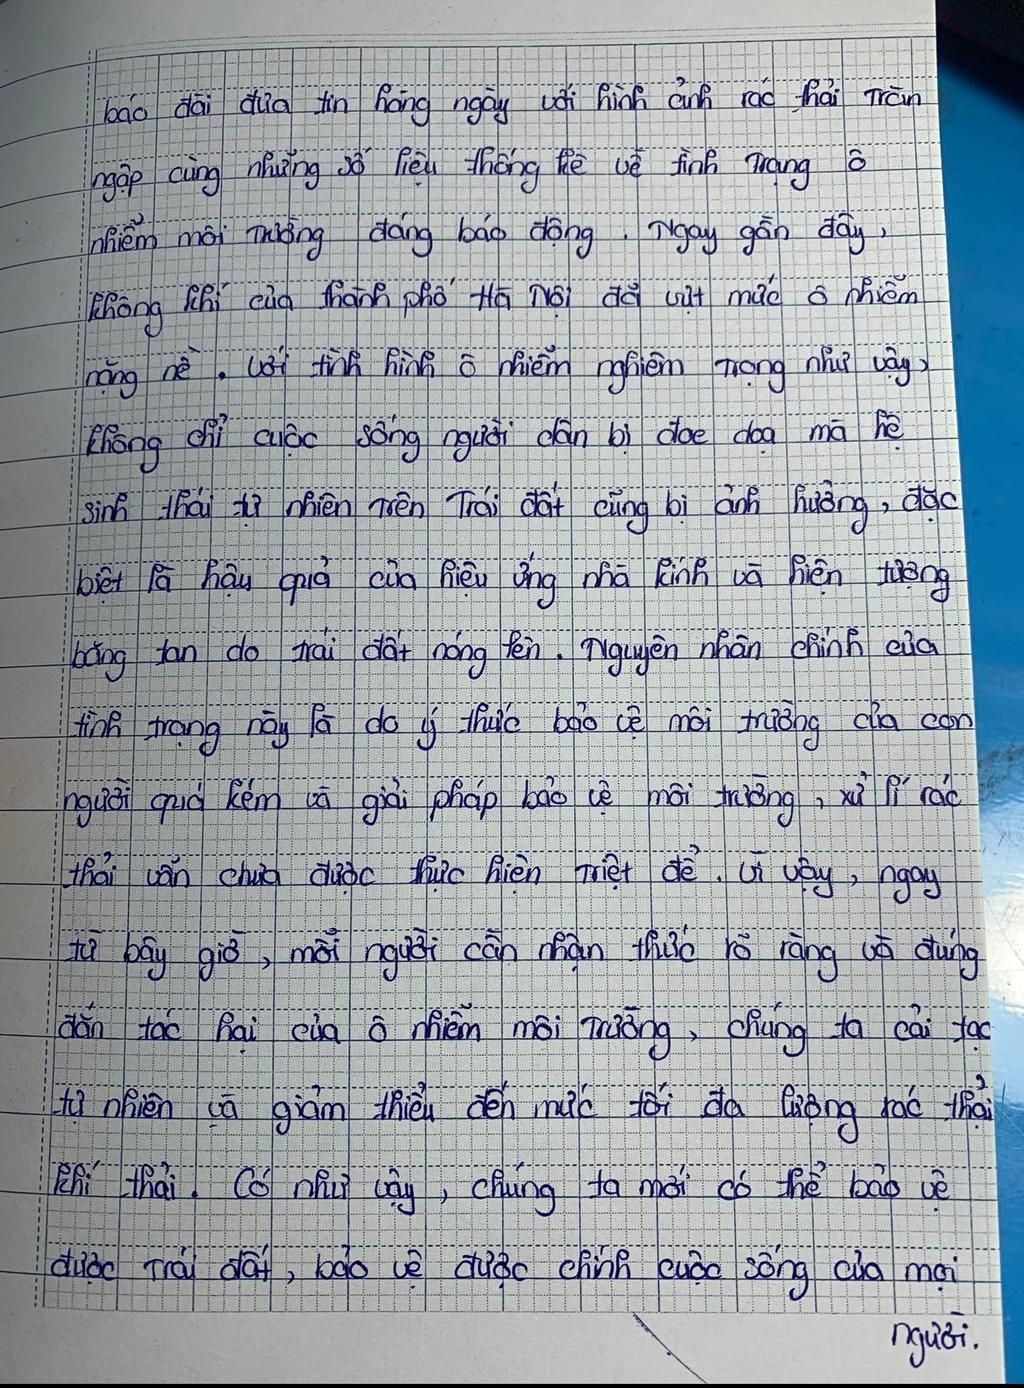 báo đài đưa tin hàng ngày với hình ảnh rác thải tràn
ngập cùng những số liệu thống kê về tình trạng ô
nhiễm môi trường đáng báo động. Ngay gần đây,
không khí của thành phố Hà Nội đã vượt mức ô nhiễm
nặng nề. Với tình hình ô nhiễm nghiêm trọng như vậy,
không chỉ cuộc sống người dân bị đoe doạ mà hệ
sinh thái tự nhiên trên Trái đất cũng bị ảnh hưởng, đặc
biệt là hậu quả của hiệu ứng nhà kính và hiện tượng
băng tan do trái đất nóng lên. Nguyên nhân chính của
tình trạng này là do ý thức bảo vệ môi trường của con
người quá kém và giải pháp bảo vệ môi trường, xử lí rác
thải vẫn chưa được thực hiện triệt để. Vì vậy, ngay
từ bây giờ, mỗi người cần nhận thức rõ ràng và đúng
đắn tác hại của ô nhiễm môi trường, chúng ta cải tạo
tự nhiên và giảm thiểu đến mức tối đa lượng rác thải
khí thải. Có như vậy, chúng ta mới có thể bảo vệ
được Trái đất, bảo vệ được chính cuộc sống của mọi
người.